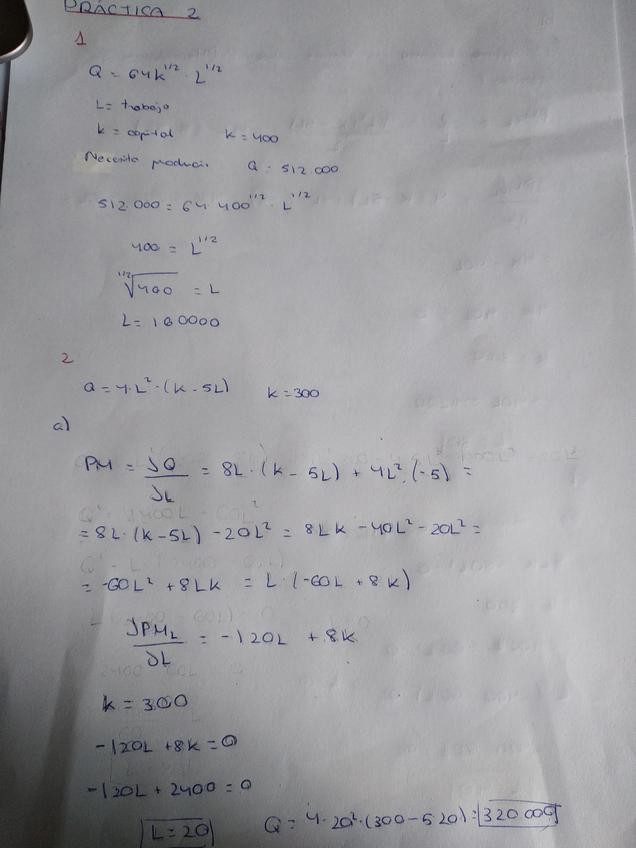 PRÁCTICA 2
1
Q = 64K^1/2 · L^1/2
L = trabajo
K = capital K = 400
Necesito producir Q = 512.000
512.000 = 64 · 400^1/2 · L^1/2
400 = L^1/2
1/2√400 = L
L = 160000
2
Q = 4·L² · (K - 5L) K = 300
a)
PM = ∂Q/∂L = 8L · (K - 5L) + 4L² · (-5) =
= 8L · (K - 5L) - 20L² = 8LK - 40L² - 20L² =
= -60L² + 8LK = L · (-60L + 8K)
∂PM_L/∂L = -120L + 8K
K = 300
-120L + 8K = 0
-120L + 2400 = 0
L = 20 Q = 4 · 20² · (300 - 5·20) = 320 000